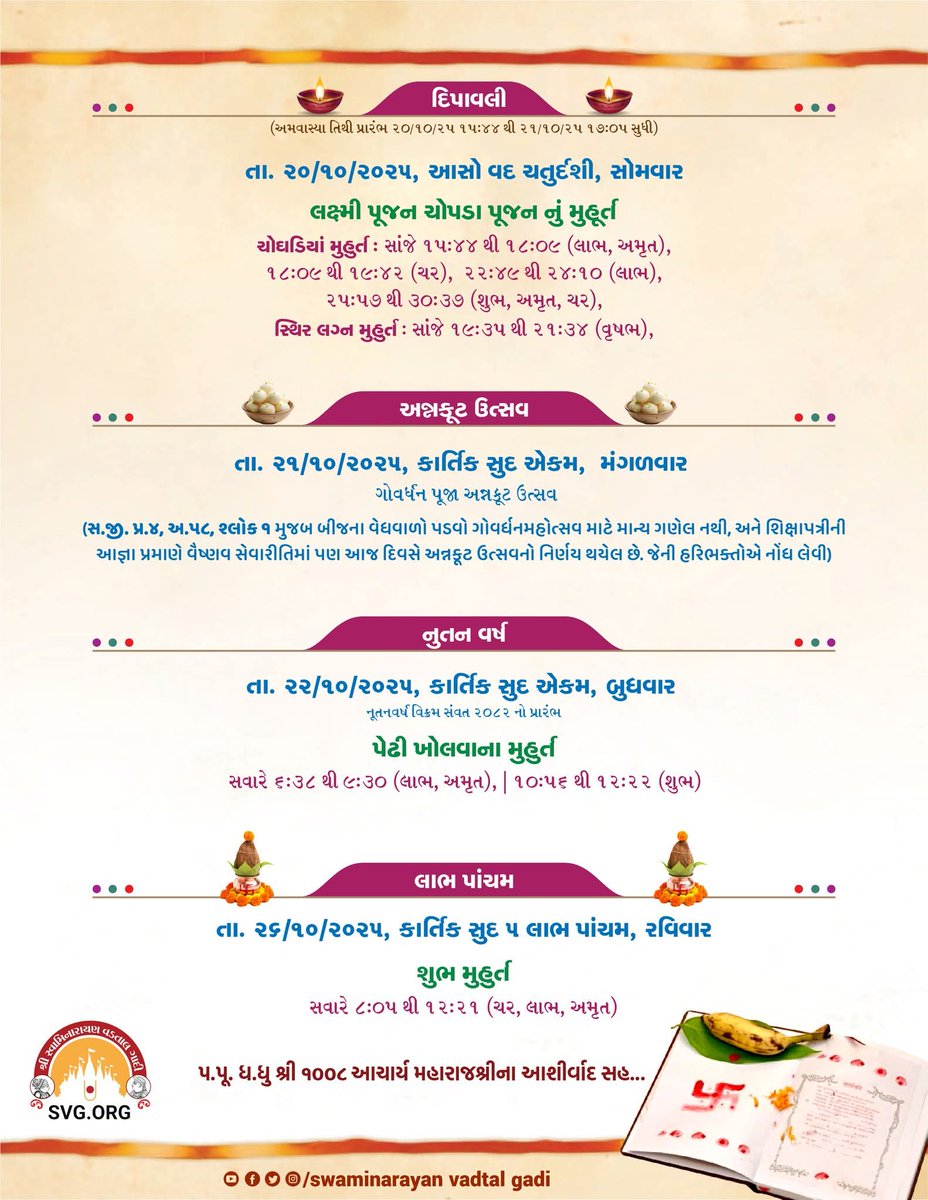 દિપાવલી
(અમવાસ્યા તિથી પ્રારંભ ૨૦/૧૦/૨૫ ૧૫:૪૪ થી ૨૧/૧૦/૨૫ ૧૭:૦૫ સુધી)
તા. ૨૦/૧૦/૨૦૨૫, આસો વદ ચતુર્દશી, સોમવાર
લક્ષ્મી પૂજન ચોપડા પૂજન નું મુહૂર્ત
ચોઘડિયાં મુહુર્ત : સાંજે ૧૫:૪૪ થી ૧૮:૦૯ (લાભ, અમૃત),
૧૮:૦૯ થી ૧૯:૪૨ (ચર), ૨૨:૪૯ થી ૨૪:૧૦ (લાભ),
૨૫:૫૭ થી ૩૦:૩૭ (શુભ, અમૃત, ચર),
સ્થિર લગ્ન મુહુર્ત : સાંજે ૧૯:૩૫ થી ૨૧:૩૪ (વૃષભ),
અન્નકૂટ ઉત્સવ
તા. ૨૧/૧૦/૨૦૨૫, કાર્તિક સુદ એકમ, મંગળવાર
ગોવર્ધન પૂજા અન્નકૂટ ઉત્સવ
(સ.જી. પ્ર.૪, અ.૫૮, શ્લોક ૧ મુજબ બીજના વેધવાળો પડવો ગોવર્ધનમહોત્સવ માટે માન્ય ગણેલ નથી, અને શિક્ષાપત્રીની
આજ્ઞા પ્રમાણે વૈષ્ણવ સેવારીતિમાં પણ આજ દિવસે અન્નકૂટ ઉત્સવનો નિર્ણય થયેલ છે. જેની હરિભક્તોએ નોંધ લેવી)
નુતન વર્ષ
તા. ૨૨/૧૦/૨૦૨૫, કાર્તિક સુદ એકમ, બુધવાર
નૂતનવર્ષ વિક્રમ સંવત ૨૦૮૨ નો પ્રારંભ
પેઢી ખોલવાના મુહુર્ત
સવારે ૬:૩૮ થી ૯:૩૦ (લાભ, અમૃત), | ૧૦:૫૬ થી ૧૨:૨૨ (શુભ)
લાભ પાંચમ
તા. ૨૬/૧૦/૨૦૨૫, કાર્તિક સુદ ૫ લાભ પાંચમ, રવિવાર
શુભ મુહુર્ત
સવારે ૮:૦૫ થી ૧૨:૨૧ (ચર, લાભ, અમૃત)
શ્રી સ્વામિનારાયણ વડતાલ ગાદી
SVG.ORG
પ.પૂ. ધ.ધુ શ્રી ૧૦૦૮ આચાર્ય મહારાજશ્રીના આશીર્વાદ સહ...
/swaminarayan vadtal gadi